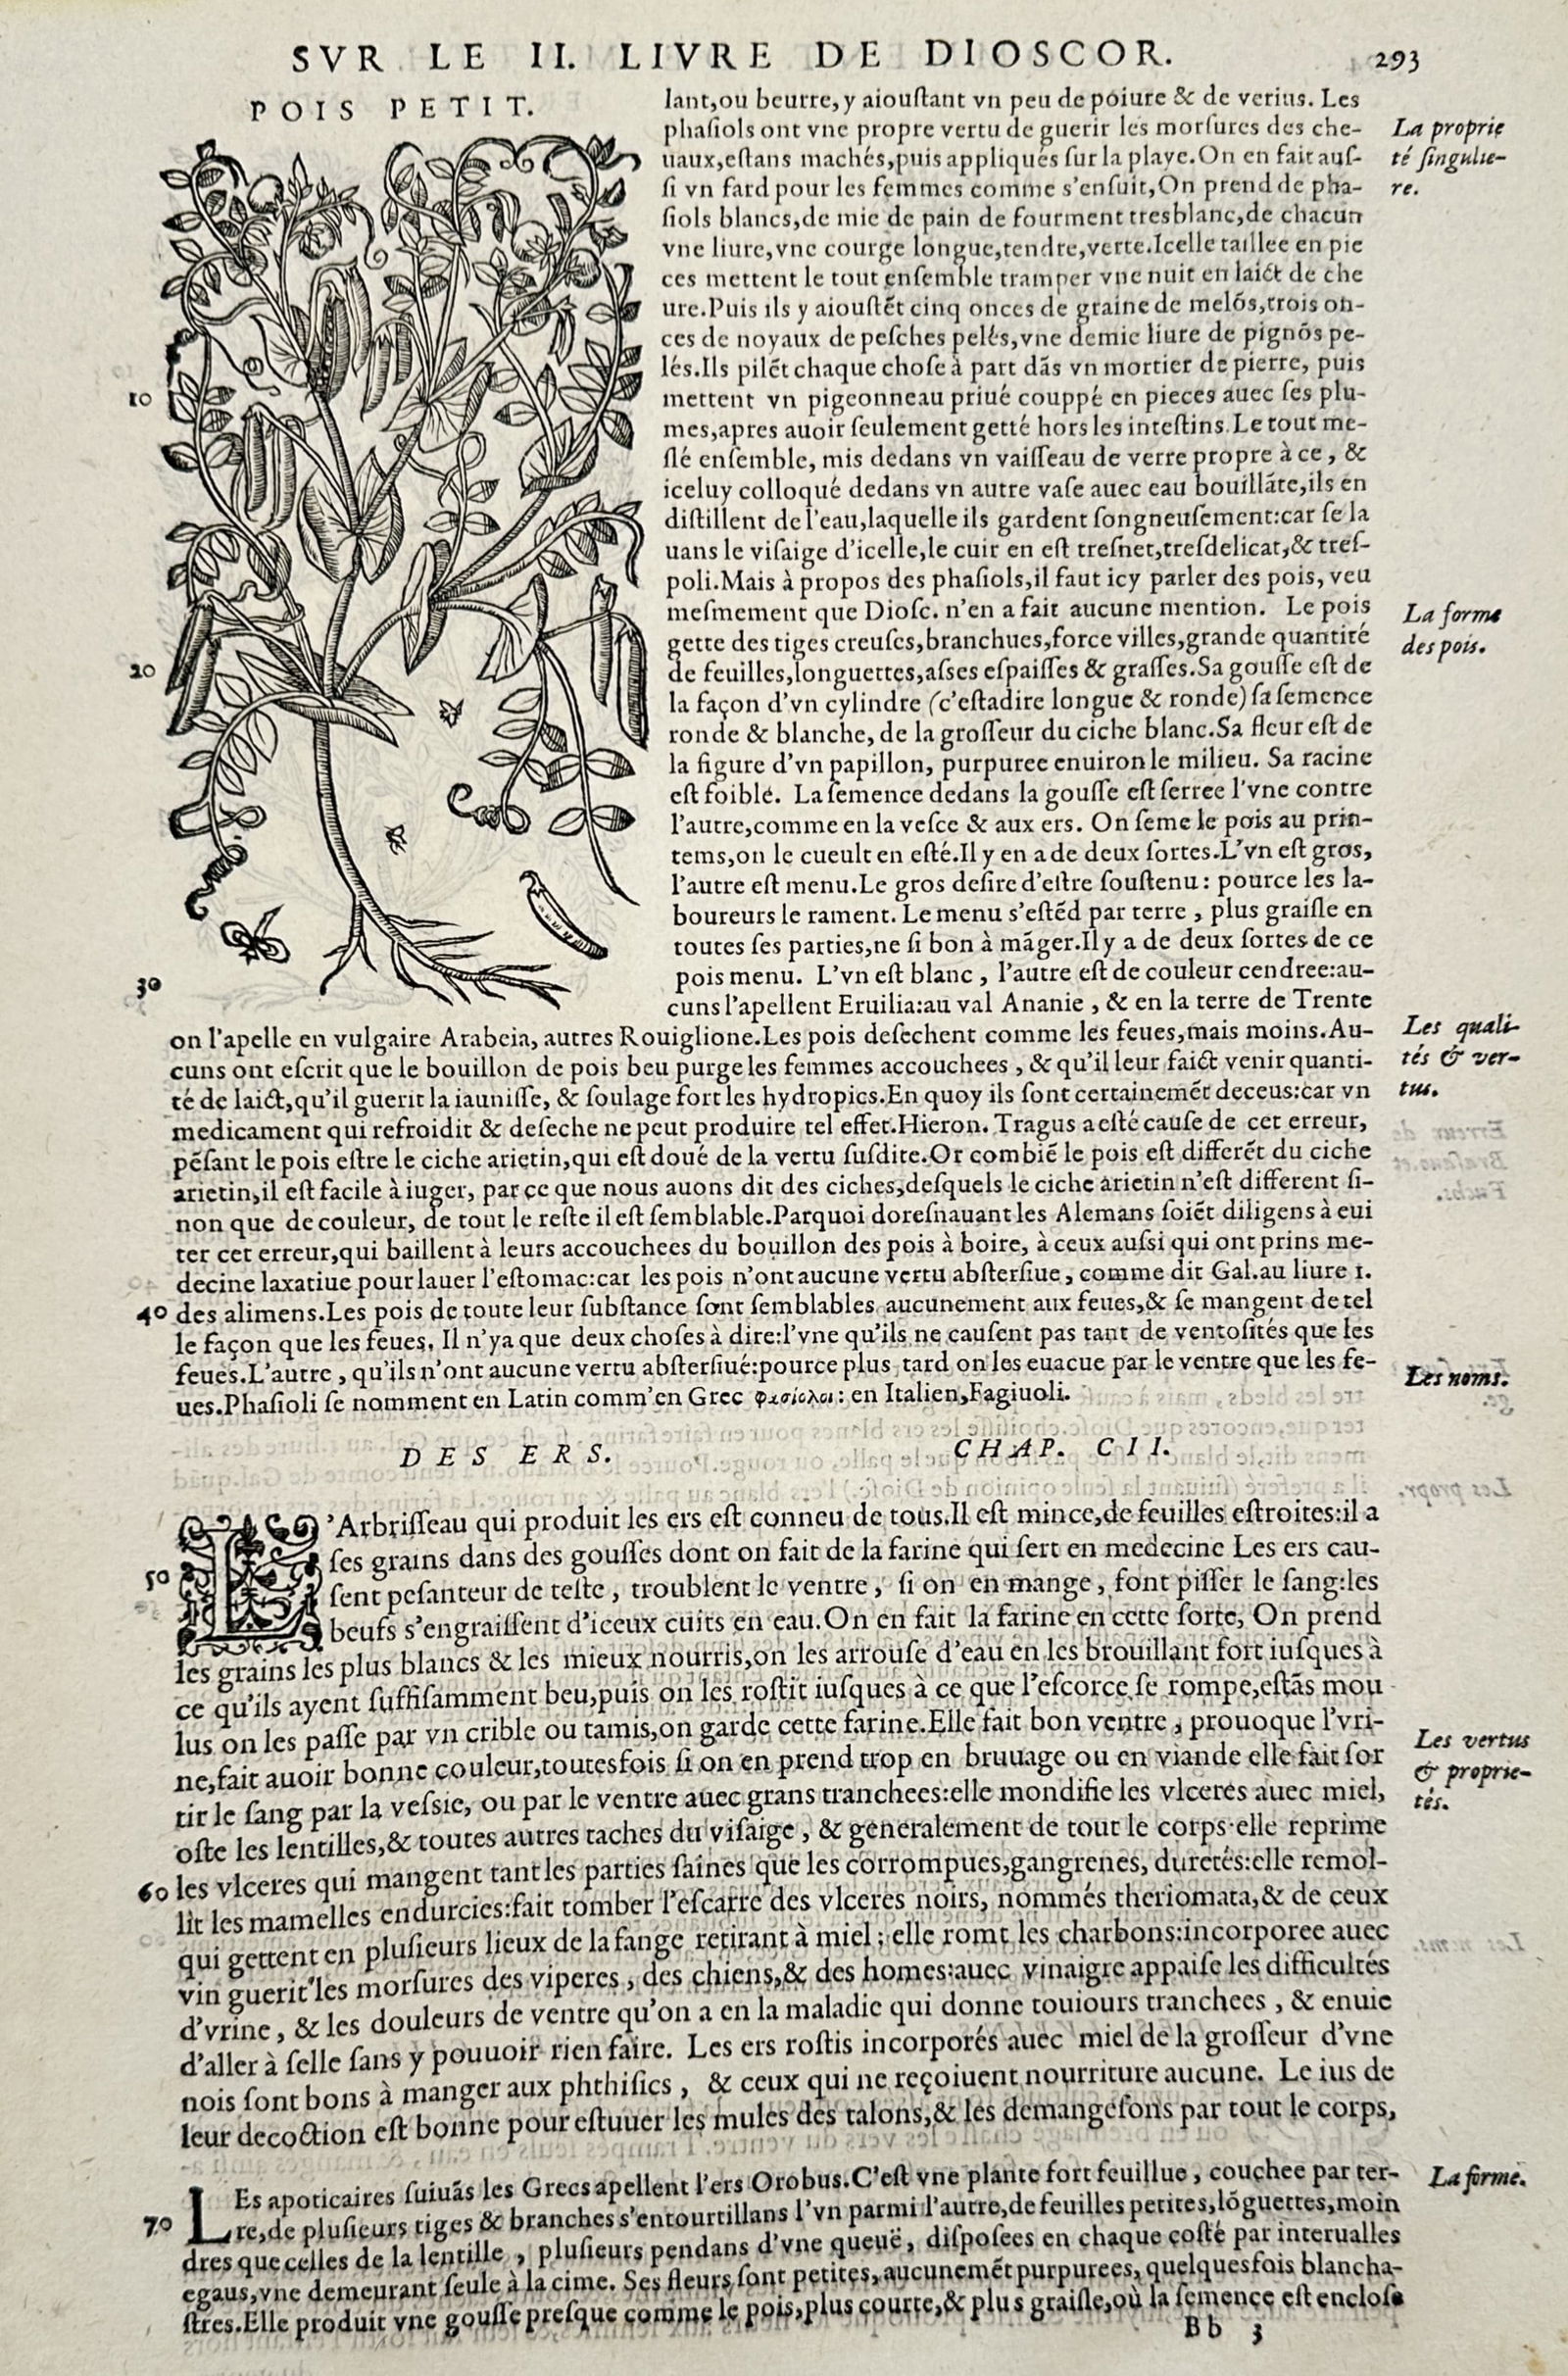 SVR LE II. LIVRE DE DIOSCOR. 293
POIS PETIT.
lant,ou beurre,y aiouſtant vn peu de poiure & de verius. Les
phaſiols ont vne propre vertu de guerir les morſures des che-
uaux,eſtans machés,puis appliqués ſur la playe.On en fait auſ-
ſi vn fard pour les femmes comme s'enſuit,On prend de pha-
ſiols blancs,de mie de pain de fourment tresblanc,de chacun
vne liure,vne courge longue,tendre,verte.Icelle taillee en pie
ces mettent le tout enſemble tramper vne nuit en laict de che
ure.Puis ils y aiouſtẽt cinq onces de graine de melõs,trois on-
ces de noyaux de peſches pelés,vne demie liure de pignõs pe-
lés.Ils pilẽt chaque choſe à part dãs vn mortier de pierre, puis
mettent vn pigeonneau priué couppé en pieces auec ſes plu-
mes,apres auoir ſeulement getté hors les inteſtins.Le tout me-
ſlé enſemble, mis dedans vn vaiſſeau de verre propre à ce, &
iceluy colloqué dedans vn autre vaſe auec eau bouillãte,ils en
diſtillent de l'eau,laquelle ils gardent ſongneuſement:car ſe la
uans le viſaige d'icelle,le cuir en eſt treſnet,treſdelicat,& treſ-
poli.Mais à propos des phaſiols,il faut icy parler des pois, veu
meſmement que Dioſc. n'en a fait aucune mention. Le pois
gette des tiges creuſes,branchues,force villes,grande quantité
de feuilles,longuettes,aſſes eſpaiſſes & graſſes.Sa gouſſe eſt de
la façon d'vn cylindre (c'eſtadire longue & ronde) ſa ſemence
ronde & blanche, de la groſſeur du ciche blanc.Sa fleur eſt de
la figure d'vn papillon, purpuree enuiron le milieu. Sa racine
eſt foible. La ſemence dedans la gouſſe eſt ſerree l'vne contre
l'autre,comme en la veſce & aux ers. On ſeme le pois au prin-
tems,on le cueult en eſté.Il y en a de deux ſortes.L'vn eſt gros,
l'autre eſt menu.Le gros deſire d'eſtre ſouſtenu: pource les la-
boureurs le rament. Le menu s'eſtẽd par terre, plus graiſle en
toutes ſes parties,ne ſi bon à mãger.Il y a de deux ſortes de ce
pois menu. L'vn eſt blanc, l'autre eſt de couleur cendree:au-
cuns l'apellent Eruilia:au val Ananie, & en la terre de Trente
on l'apelle en vulgaire Arabeia, autres Rouiglione.Les pois deſechent comme les feues,mais moins.Au-
cuns ont eſcrit que le bouillon de pois beu purge les femmes accouchees, & qu'il leur faict venir quanti-
té de laict,qu'il guerit la iauniſſe, & ſoulage fort les hydropics.En quoy ils ſont certainemẽt deceus:car vn
medicament qui refroidit & deſeche ne peut produire tel effet.Hieron. Tragus a eſté cauſe de cet erreur,
pẽſant le pois eſtre le ciche arietin,qui eſt doué de la vertu ſuſdite.Or combiẽ le pois eſt differẽt du ciche
arietin,il eſt facile à iuger, par ce que nous auons dit des ciches,deſquels le ciche arietin n'eſt different ſi-
non que de couleur, de tout le reſte il eſt ſemblable.Parquoi doreſnauant les Alemans ſoiẽt diligens à eui
ter cet erreur,qui baillent à leurs accouchees du bouillon des pois à boire, à ceux auſsi qui ont prins me-
decine laxatiue pour lauer l'eſtomac:car les pois n'ont aucune vertu abſterſiue, comme dit Gal.au liure 1.
des alimens.Les pois de toute leur ſubſtance ſont ſemblables aucunement aux feues,& ſe mangent de tel
le façon que les feues. Il n'y a que deux choſes à dire:l'vne qu'ils ne cauſent pas tant de ventoſités que les
feues.L'autre, qu'ils n'ont aucune vertu abſterſiue:pource plus tard on les euacue par le ventre que les fe-
ues.Phaſioli ſe nomment en Latin comm'en Grec φασίολοι: en Italien,Fagiuoli.
La proprie
té ſingulie-
re.
La forme
des pois.
Les quali-
tés & ver-
tus.
Les noms.
10
20
30
40
DES ERS. CHAP. CII.
L'Arbriſſeau qui produit les ers eſt conneu de tous.Il eſt mince,de feuilles eſtroites:il a
ſes grains dans des gouſſes dont on fait de la farine qui ſert en medecine Les ers cau-
ſent peſanteur de teſte, troublent le ventre, ſi on en mange, font piſſer le ſang:les
beufs s'engraiſſent d'iceux cuits en eau.On en fait la farine en cette ſorte, On prend
les grains les plus blancs & les mieux nourris,on les arrouſe d'eau en les brouillant fort iuſques à
ce qu'ils ayent ſuffiſamment beu,puis on les roſtit iuſques à ce que l'eſcorce ſe rompe,eſtãs mou
lus on les paſſe par vn crible ou tamis,on garde cette farine.Elle fait bon ventre, prouoque l'vri-
ne,fait auoir bonne couleur,toutesfois ſi on en prend trop en bruuage ou en viande elle fait ſor
tir le ſang par la veſsie, ou par le ventre auec grans tranchees:elle mondifie les vlceres auec miel,
oſte les lentilles,& toutes autres taches du viſaige, & generalement de tout le corps:elle reprime
les vlceres qui mangent tant les parties ſaines que les corrompues,gangrenes, duretés:elle remol-
lit les mamelles endurcies:fait tomber l'eſcarre des vlceres noirs, nommés theriomata,& de ceux
qui gettent en pluſieurs lieux de la fange retirant à miel; elle romt les charbons:incorporee auec
vin guerit les morſures des viperes, des chiens,& des homes:auec vinaigre appaiſe les difficultés
d'vrine, & les douleurs de ventre qu'on a en la maladie qui donne touiours tranchees, & enuie
d'aller à ſelle ſans y pouuoir rien faire. Les ers roſtis incorporés auec miel de la groſſeur d'vne
nois ſont bons à manger aux phthiſics, & ceux qui ne reçoiuent nourriture aucune. Le ius de
leur decoction eſt bonne pour eſtuuer les mules des talons,& les demangeſons par tout le corps,
50
60
Les vertus
& proprie-
tés.
LEs apoticaires ſuiuãs les Grecs apellent l'ers Orobus.C'eſt vne plante fort feuillue, couchee par ter-
re,de pluſieurs tiges & branches s'entourtillans l'vn parmi l'autre,de feuilles petites,lõguettes,moin
dres que celles de la lentille, pluſieurs pendans d'vne queuë, diſpoſees en chaque coſté par interualles
egaus,vne demeurant ſeule à la cime. Ses fleurs ſont petites,aucunemẽt purpurees, quelquesfois blancha-
ſtres.Elle produit vne gouſſe preſque comme le pois,plus courte,& plus graiſle,où la ſemence eſt encloſe
La forme.
70
Bb 3